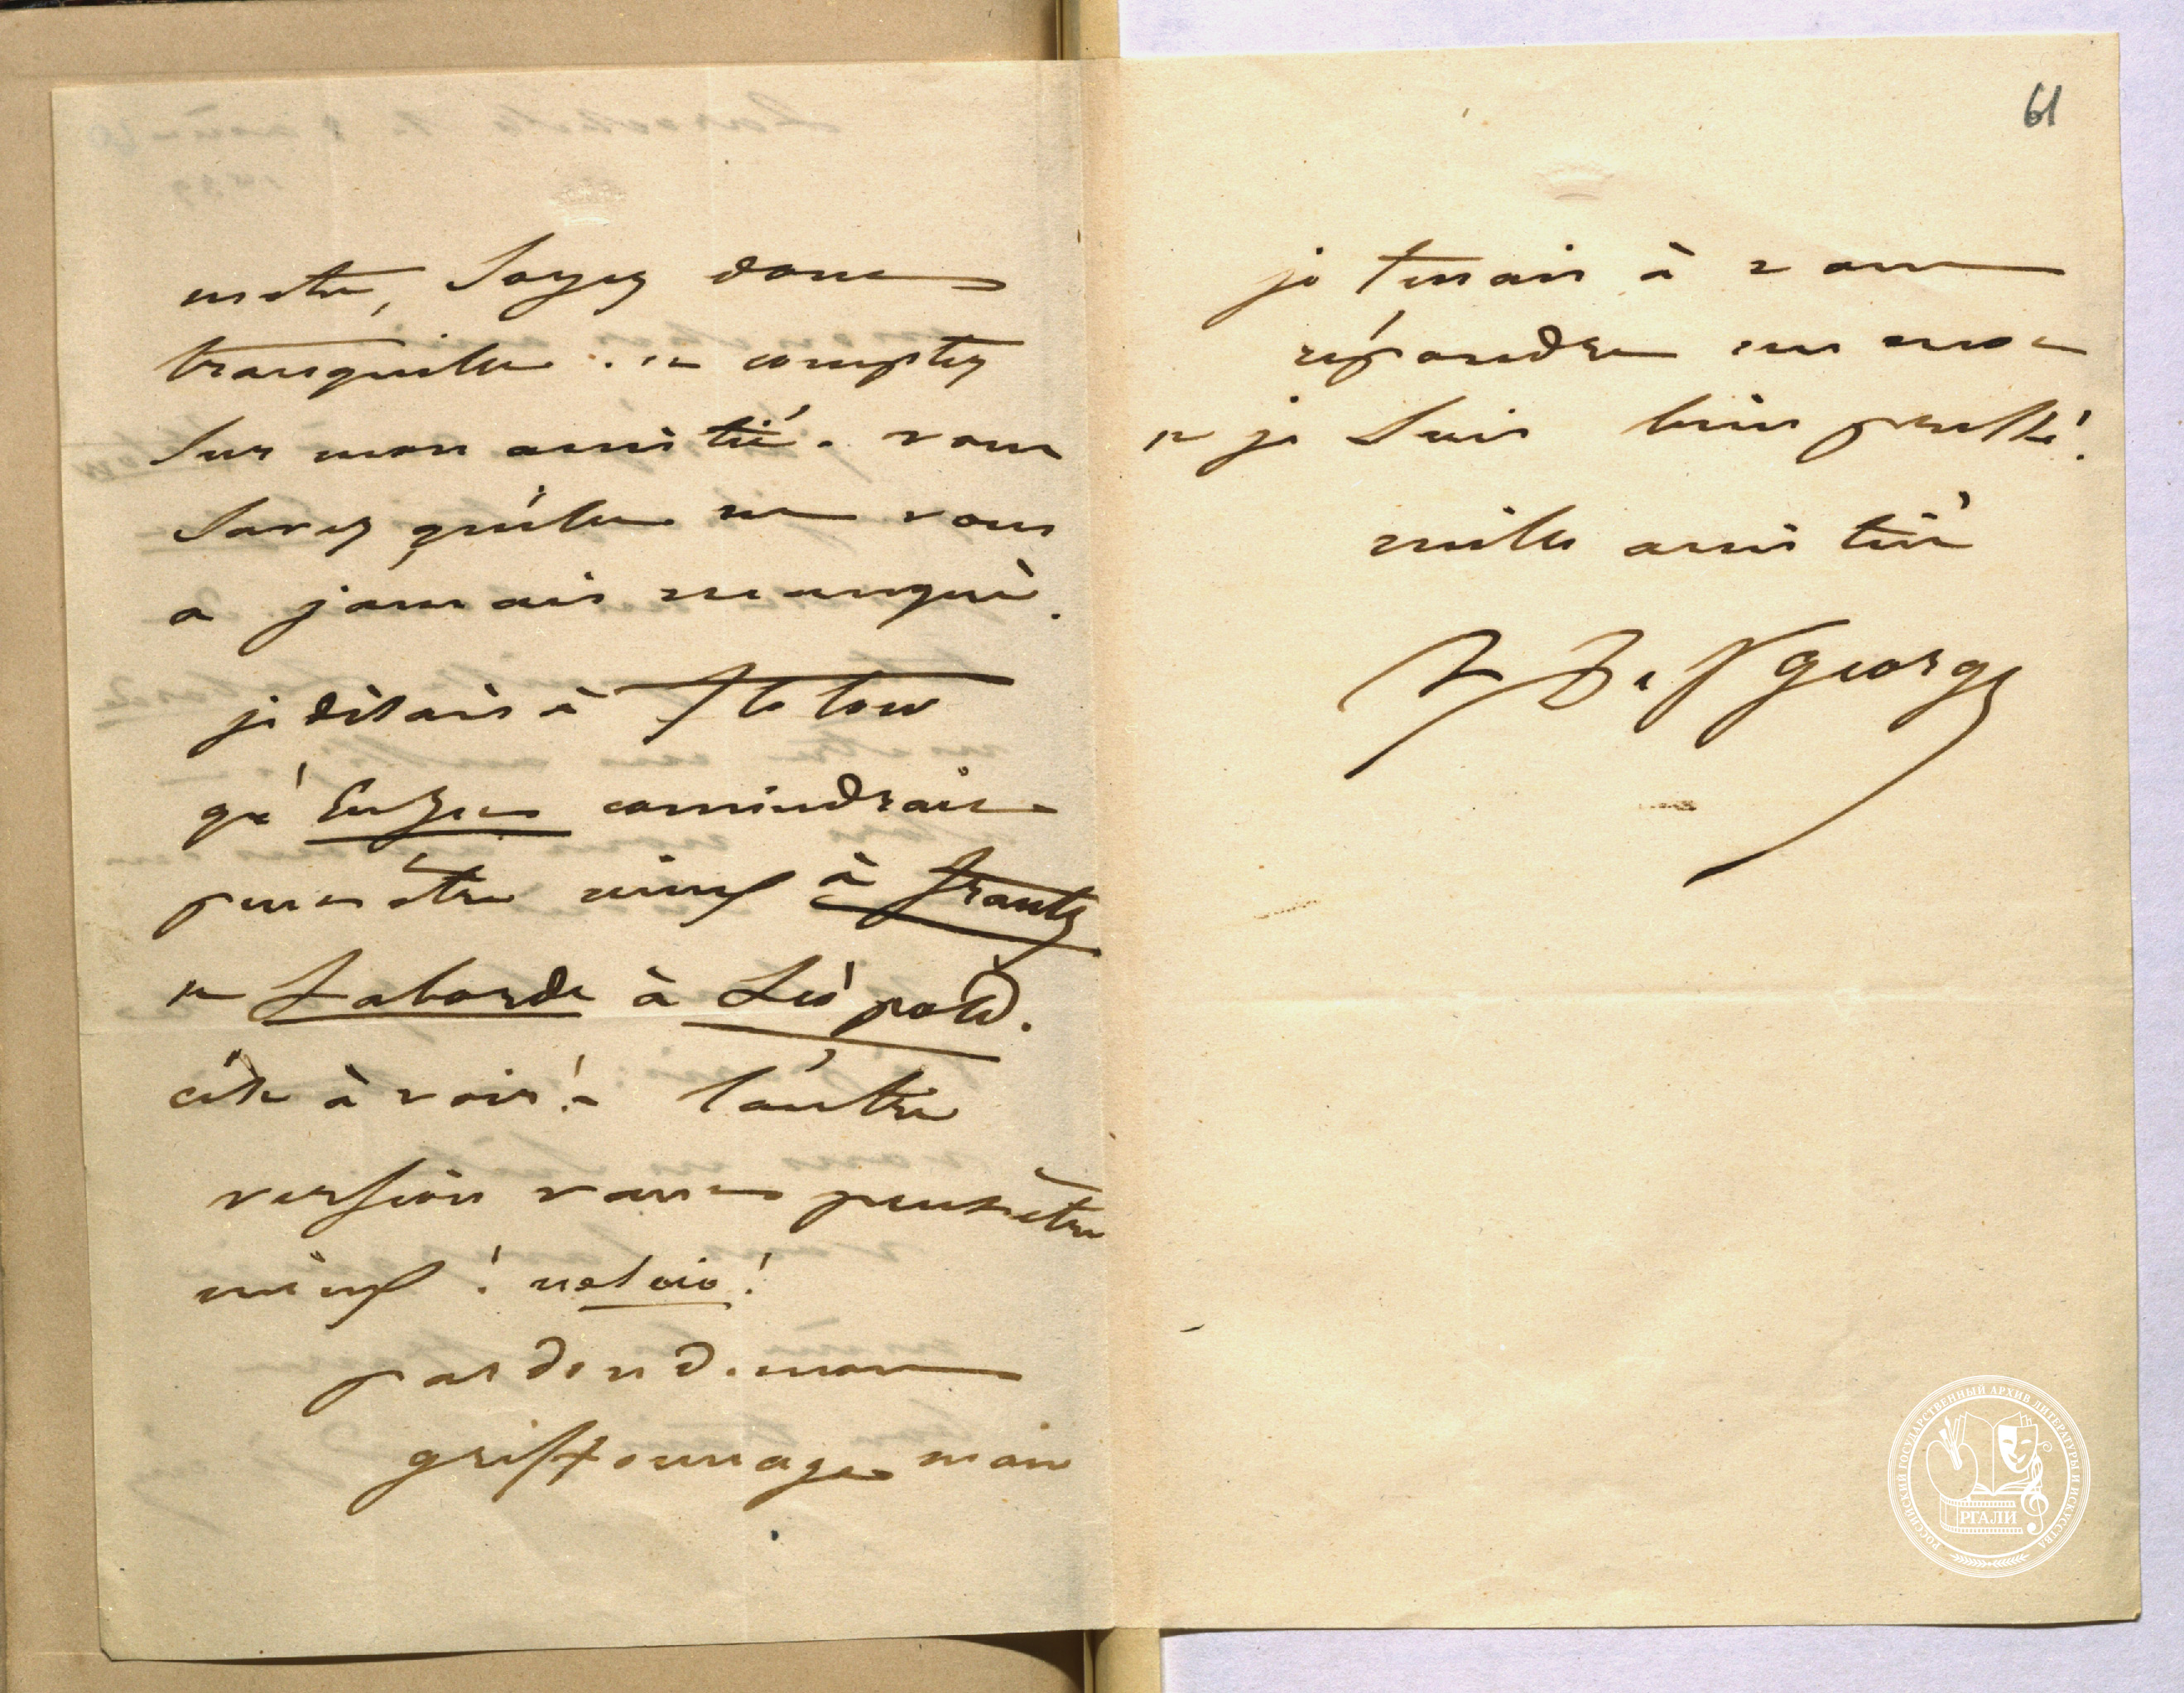 notre, Soyez donc
tranquille. et comptez
Sur mon amitié. vous
Savez qu'elle ne vous
a jamais manqué.
je disais à Flotow
qu'Enzio conviendrait
peut être mieux à Frantz
et Laborde à Léopold.
c'est à voir! l'autre
version vaut peutêtre
mieux!
pardon d. mon
griffonnage mais
61
je tenais à vous
répondre un mot
et je Suis bien pressé!
mille amitié
De St George
РОССИЙСКИЙ ГОСУДАРСТВЕННЫЙ АРХИВ ЛИТЕРАТУРЫ И ИСКУССТВА
РГАЛИ